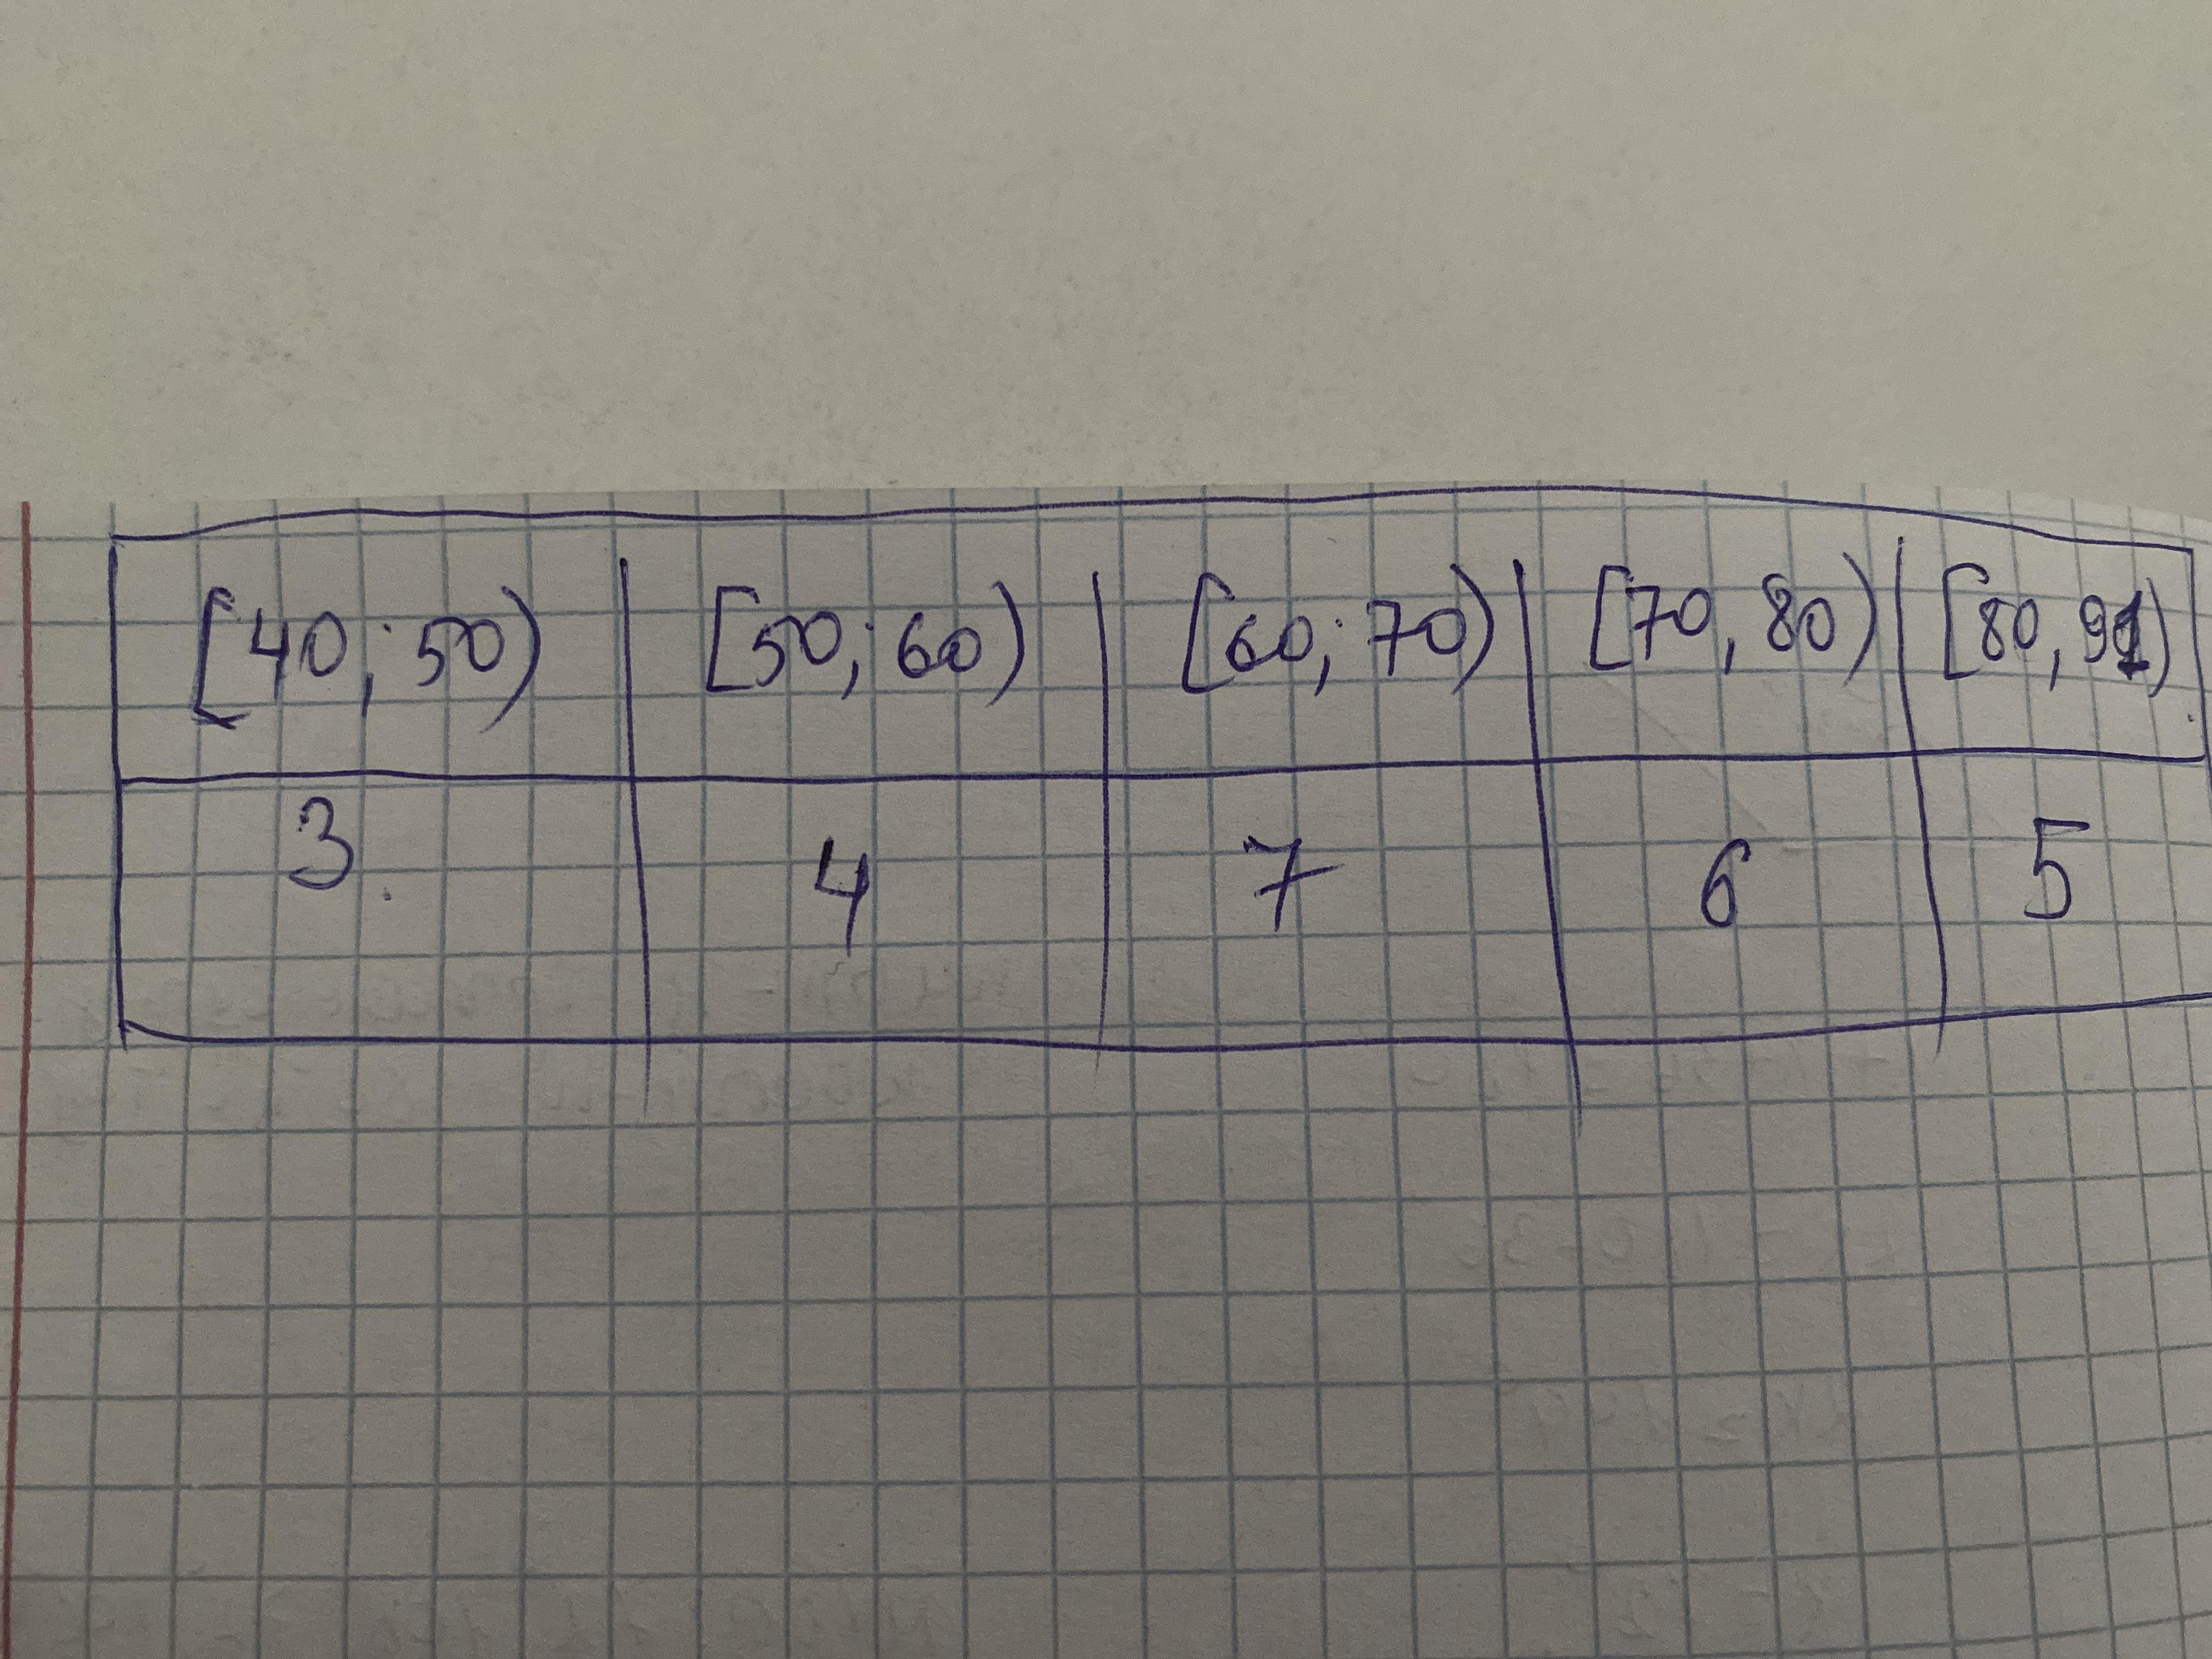 [40; 50) [50; 60) [60; 70) [70, 80) [80, 91)
3 4 7 6 5